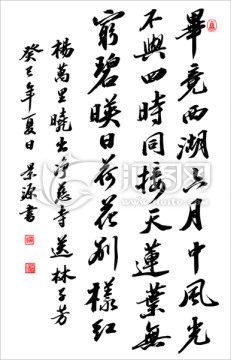 畢竟西湖六月中風光
不與四時同接天蓮葉無
窮碧暎日荷花別樣紅
楊萬里曉出淨慈寺送林子芳
癸巳年夏日 景源書